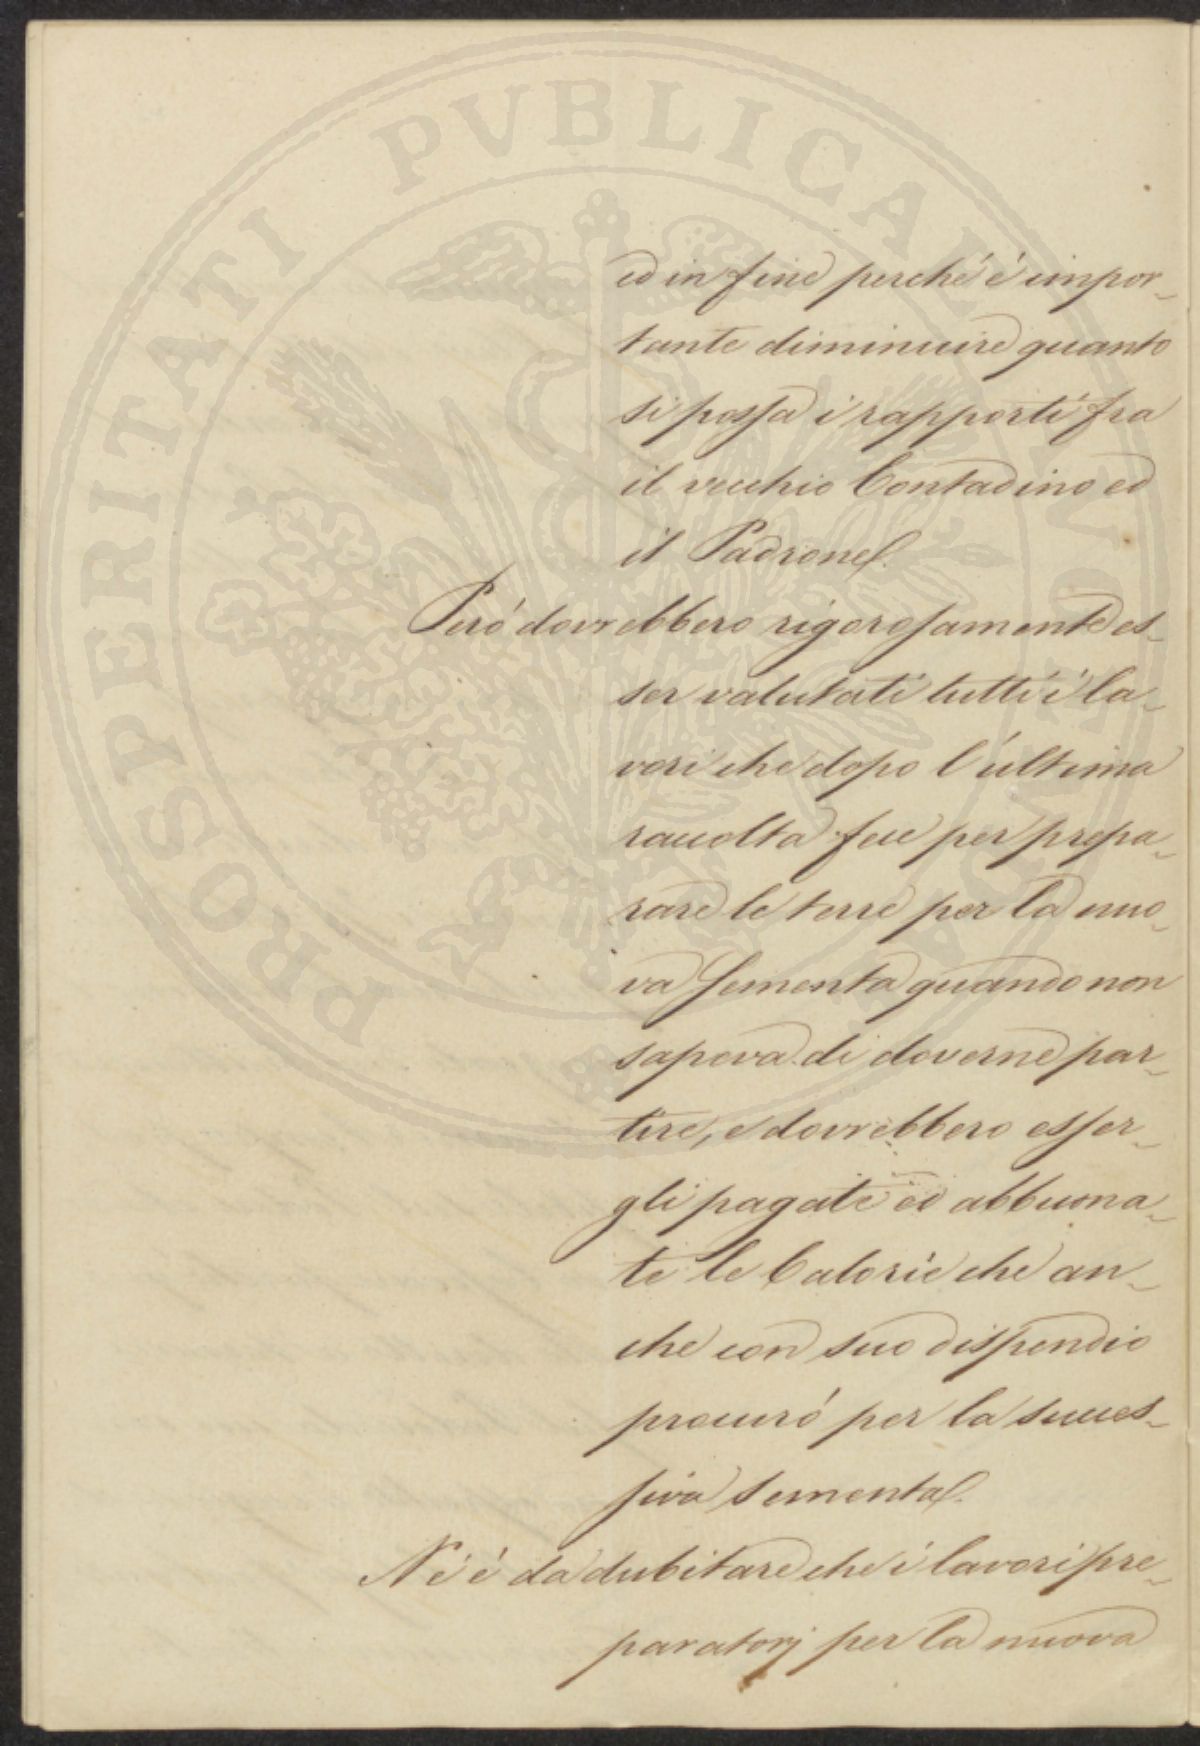 PROSPERITATI PVBLICAE AVGENDAE
ed in fine perché è impor-
tante diminuire quanto
si possa i rapporti fra
il vecchio Contadino ed
il Padrone.
Peró dovrebbero rigorosamente es-
ser valutati tutti i la-
vori che dopo l'ultima
raccolta fece per prepa-
rare le terre per la nuo-
va sementa quando non
sapeva di doverne par-
tire, e dovrebbero esser-
gli pagate ed abbuona-
te le Calorie che an-
che con suo dispendio
procuró per la succes-
siva sementa.
Né è da dubitare che i lavori pre-
paratorj per la nuova